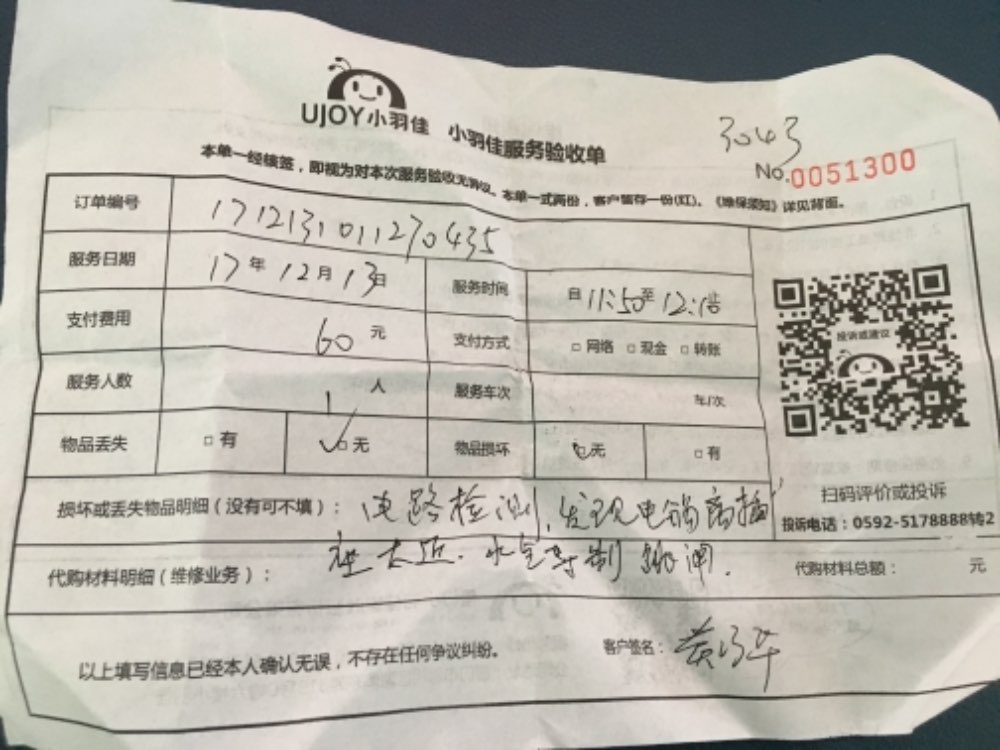 UJOY小羽佳 小羽佳服务验收单
3043
No.0051300
本单一经核签，即视为对本次服务验收无争议。本单一式两份，客户留存一份(红)。《维保须知》详见背面。
订单编号 1712131011270435
服务日期 17年12月13日 服务时间 自11:50至12:18
支付费用 60元 支付方式 □网络 □现金 □转账
服务人数 1人 服务车次 车/次
物品丢失 □有 ✓□无 物品损坏 ✓□无 □有
投诉或建议
扫码评价或投诉
投诉电话：0592-5178888转2
损坏或丢失物品明细（没有可不填）：电路检测，发现电锅离插
座太近．水气导制跳闸．
代购材料明细（维修业务）： 代购材料总额： 元
以上填写信息已经本人确认无误，不存在任何争议纠纷。 客户签名：黄 华